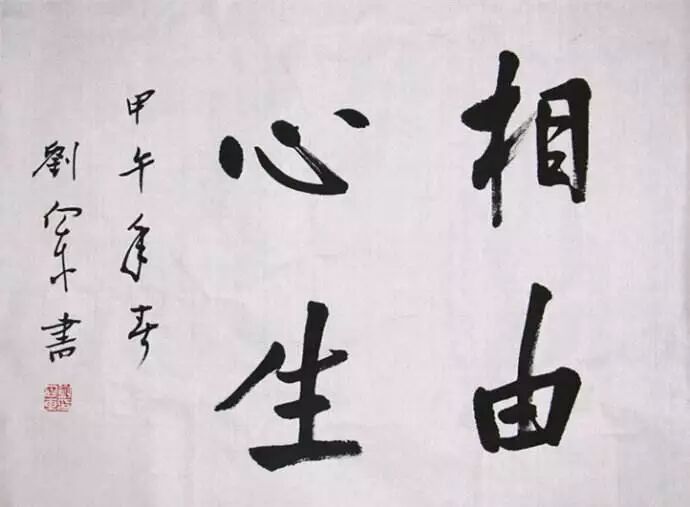 相由
心生
甲午年春
劉向東書